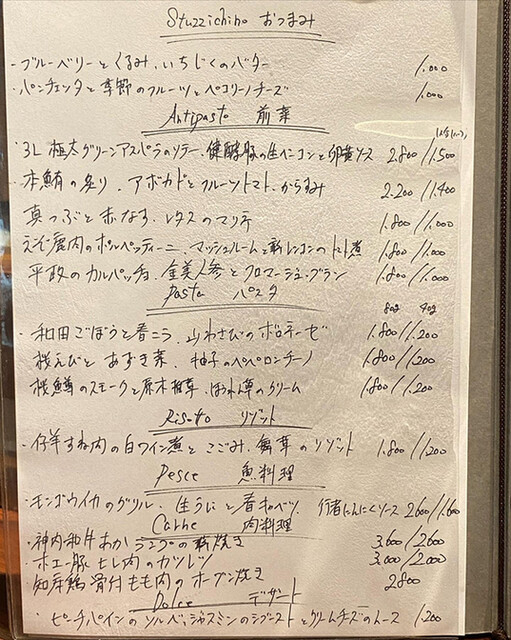 Stuzzichino おつまみ
・ブルーベリーとくるみ、いちじくのバター 1,000
・パンチェッタと季節のフルーツとペコリーノチーズ 1,000
Antipasto 前菜
・3L 極太グリーンアスパラのソテー、健酵豚の生ベーコンと卵黄ソース 2,800/1,500
・本鮪の炙り、アボカドとフルーツトマト、からすみ 2,200/1,400
真つぶと赤なす、レタスのマリネ 1,800/1,000
えぞ鹿肉のポルペッティーニ、マッシュルームと新レンコンのトマト煮 1,800/1,000
平政のカルパッチョ、金美人参とフロマージュ・ブラン 1,800/1,000
Pasta パスタ
80g 40g
・和田ごぼうと香ニラ、山わさびのボロネーゼ 1,800/1,200
桜えびとあすき菜、柚子のペペロンチーノ 1,800/1,200
桜鱒のスモークと原木椎茸、ほうれん草のクリーム 1,800/1,200
Risoto リゾット
・仔羊すね肉の白ワイン煮とこごみ、舞茸のリゾット 1,800/1,200
Pesce 魚料理
・モンゴウイカのグリル、生うにと春キャベツ、行者にんにくソース 2,600/1,600
Carne 肉料理
・神内和牛あか ランプの薪焼き 3,600/2,600
・ホエー豚ヒレ肉のカツレツ 3,000/2,000
知床鶏骨付もも肉のオーブン焼き 2,800
Dolce デザート
・ピーチパインのソルベ、ジャスミンのジュレとクリームチーズのムース 1,200